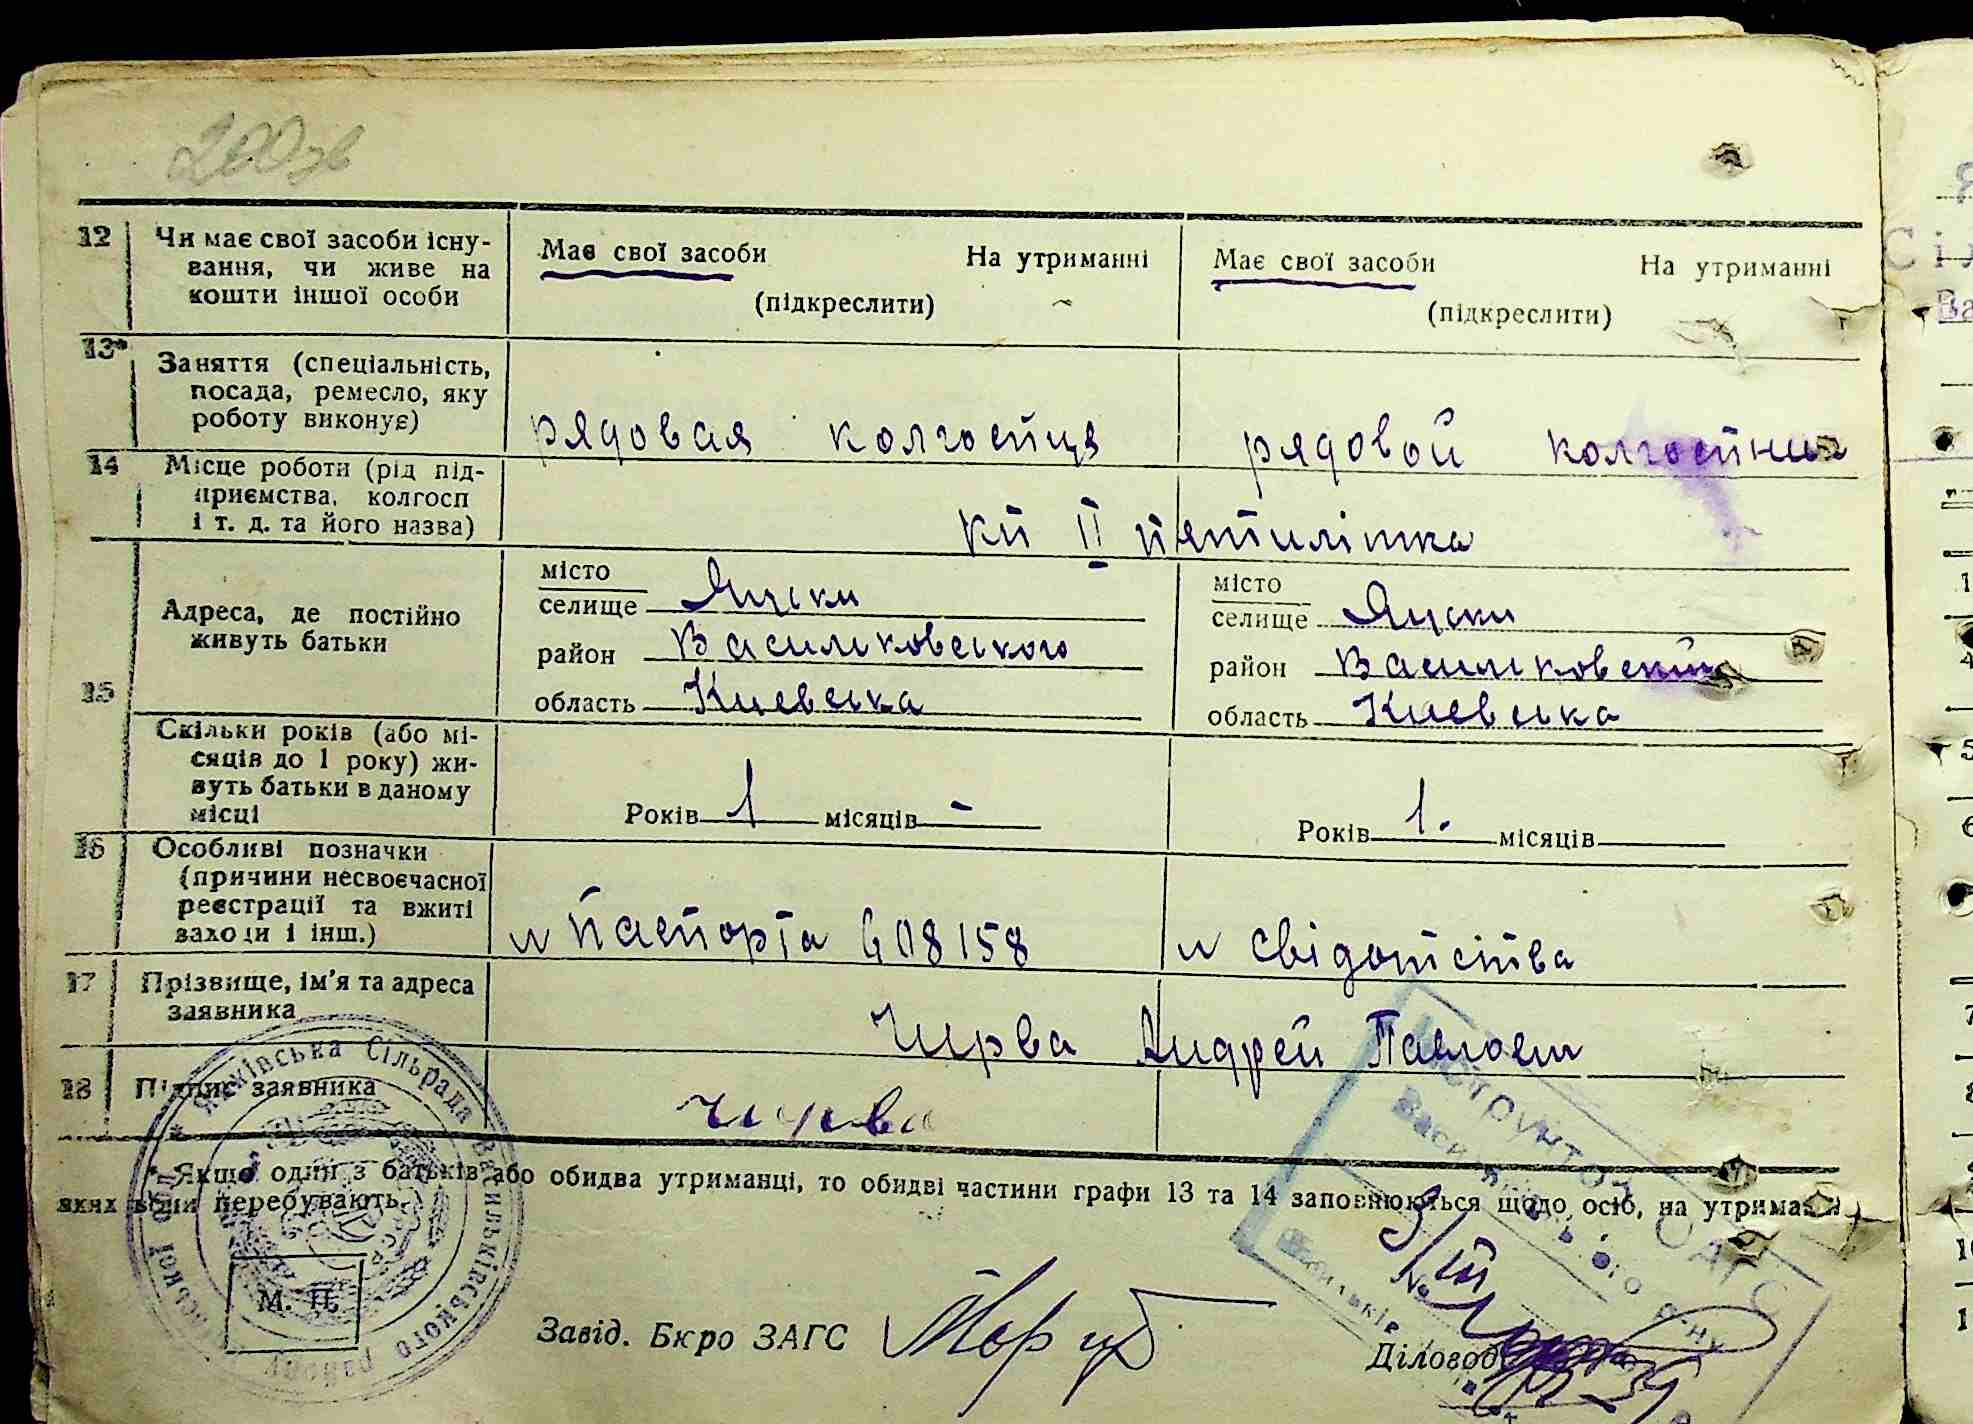 200зв
12 Чи має свої засоби існу-
вання, чи живе на
кошти іншої особи
Має свої засоби На утриманні
(підкреслити)
Має свої засоби На утриманні
(підкреслити)
13* Заняття (спеціальність,
посада, ремесло, яку
роботу виконує)
рядовая колгоспця
рядовой колгоспник
14 Місце роботи (рід під-
приємства, колгосп
і т. д. та його назва)
кп II пятилітка
15 Адреса, де постійно
живуть батьки
місто
селище Яцьки
район Васильковського
область Киевська
місто
селище Яцьки
район Васильковский
область Киевська
Скільки років (або мі-
сяців до 1 року) жи-
вуть батьки в даному
місці
Років 1 місяців -
Років 1. місяців
16 Особливі позначки
(причини несвоєчасної
реєстрації та вжиті
заходи і інш.)
паспорта 608158
свідотства
17 Прізвище, ім'я та адреса
заявника
Чирва Андрей Павлович
18 Підпис заявника
Чирва
* Якщо один з батьків або обидва утриманці, то обидві частини графи 13 та 14 заповнюються щодо осіб, на утриманні
яких вони перебувають.
М. П.
Завід. Бюро ЗАГС
Діловод
Сільрада Васильківського району